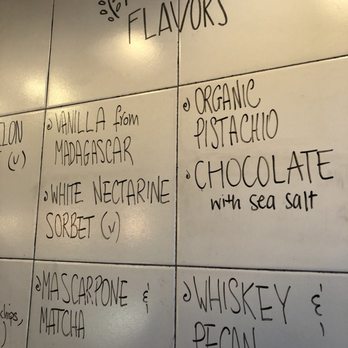 FLAVORS
VANILLA from
MADAGASCAR
WHITE NECTARINE
SORBET (v)
MASCARPONE &
MATCHA
ORGANIC
PISTACHIO
CHOCOLATE
with sea salt
WHISKEY &
PECAN
(v)
chips,